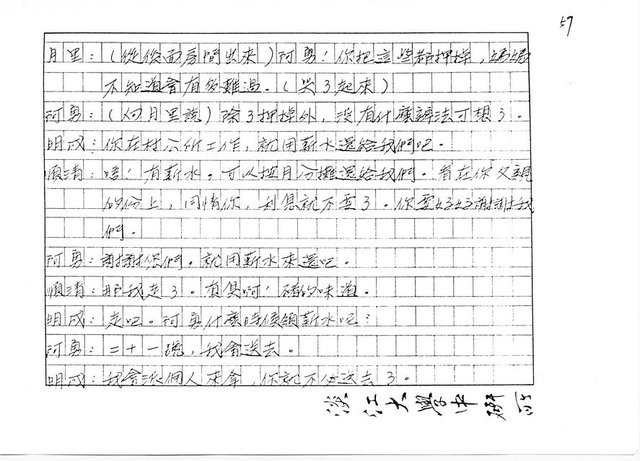 57
月里：（從後面房間出來）阿勇！你把這些都押掉，媽媽
不知道會有多難過。（哭了起來）
阿勇：（向月里說）除了押掉外，沒有什麼辦法可想了。
明成：你在村公所工作，就用薪水還給我們吧。
順清：唔！有薪水。可以按月分攤還給我們。看在你父親
的份上，同情你，利息就不要了。你要好好謝謝我
們。
阿勇：謝謝您們。就用薪水來還吧。
順清：那我走了。真臭啊！豬的味道。
明成：走吧。阿勇什麼時候領薪水呢？
阿勇：二十一號，我會送去。
明成：我會派個人來拿，你就不必送去了。
淡江大學中研所